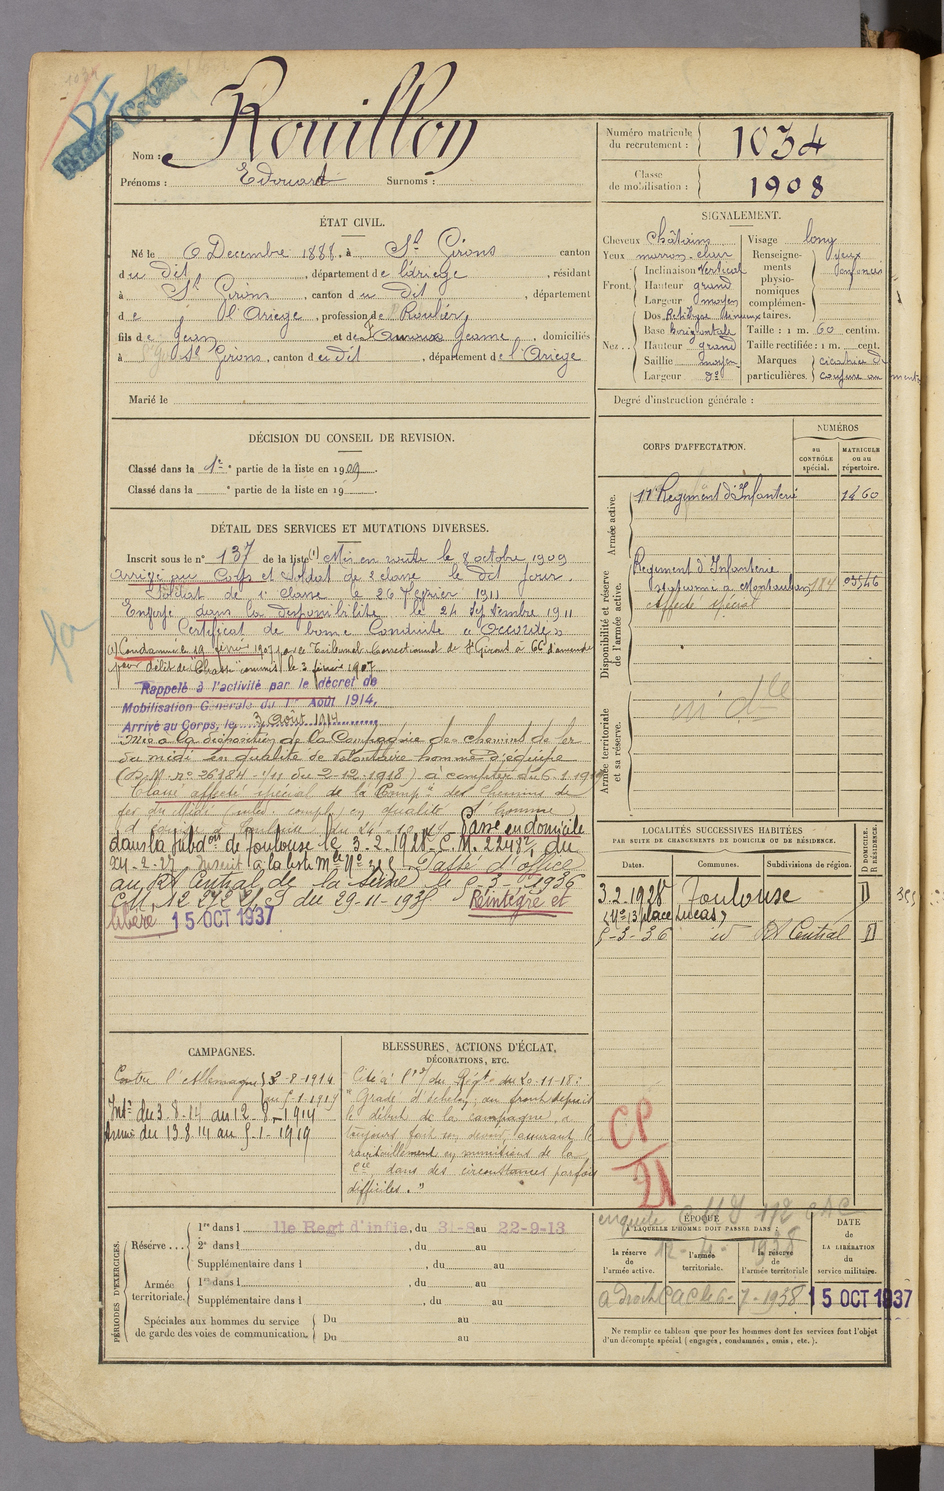 Nom : Rouillon
Prénoms : Edouard Surnoms :
Numéro matricule du recrutement : 1034
Classe de mobilisation : 1908
ÉTAT CIVIL.
Né le 6 Decembre 1888, à St Girons canton
du dit, département de l'Ariege, résidant
à St Girons, canton du dit, département
de l'Ariege, profession de Roulier
fils de Jean et de Jeanne, domiciliés
à St Girons, canton du dit, département de l'Ariege
Marié le
SIGNALEMENT.
Cheveux châtains
Yeux marron clair
Front. Inclinaison Vertical
Hauteur grand
Largeur moyen
Nez. Dos Rectiligne sinueux
Base horizontale
Hauteur grand
Saillie moyen
Largeur do
Visage long
Renseignements physionomiques complémentaires. Yeux
Taille : 1 m. 60 centim.
Taille rectifiée : 1 m. cent.
Marques particulières. cicatrice de
coupure au menton
Degré d'instruction générale :
DÉCISION DU CONSEIL DE REVISION.
Classé dans la 1re partie de la liste en 1909.
Classé dans la e partie de la liste en 19
DÉTAIL DES SERVICES ET MUTATIONS DIVERSES.
Inscrit sous le n° 137 de la liste (1) Mis en route le 8 octobre 1909
Arrivé au Corps et Soldat de 2e classe le dit jour.
Soldat de 1e classe le 26 Fevrier 1911
dans la disponibilité le 24 Septembre 1911
Certificat de bonne Conduite « Accordé »
(1) Condamné le 19 février 1907 par le Tribunal Correctionnel de St Girons à 66f d'amende
pour délit de Chasse commis le 3 février 1907
Rappelé à l'activité par le décret de
Mobilisation Générale du 1er Août 1914,
Arrivé au Corps, le 3 Août 1914
Mis à la disposition de la Compagnie des chemins de fer
du midi en qualité de volontaire homme d'équipe
(D.M. n° 26184-1/11 du 2-12-1918) à compter du 6-1-1919
Classé affecté spécial de la Compie des Chemins de
fer du Midi en qualité d'homme
d'équipe à Toulouse du Passé en domicile
dans la subdon de Toulouse le 3-2-1928 C.M. 2248 du
24-2-27 Inscrit à la liste Mle N° Passé d'office
au Rt Central de la Seine le 5-3-1936
CM 12 272 du 29-11-1935 Réintégré et
libéré 15 OCT 1937
CORPS D'AFFECTATION.
NUMÉROS
au CONTRÔLE spécial.
MATRICULE ou au répertoire.
Armée active.
11e Regiment d'Infanterie 1460
Disponibilité et réserve de l'armée active.
Regiment d'Infanterie
stationné à Montauban 184 03546
Affecté spécial
Armée territoriale et sa réserve.
LOCALITÉS SUCCESSIVES HABITÉES
PAR SUITE DE CHANGEMENTS DE DOMICILE OU DE RÉSIDENCE.
Dates. Communes. Subdivisions de région. D DOMICILE. R RÉSIDENCE.
3.2.1928 Toulouse D
13 place Lucas
5-3-36 id Rt Central D
CAMPAGNES.
Contre l'Allemagne 3-8-1914
au 5-1-1919
Intre du 3.8.14 au 12-8-1914
Armées du 13.8.14 au 5-1-1919
BLESSURES, ACTIONS D'ÉCLAT,
DÉCORATIONS, ETC.
Cité à l'O/ du Régt du 20-11-18 :
" Gradé d'échelon, au front depuis
le début de la campagne, a
toujours fait son devoir, assurant le
ravitaillement en munitions de la
Cie dans des circonstances parfois
difficiles. "
CP/21
PÉRIODES D'EXERCICES.
Réserve... 1re dans l 11e Regt d'infie, du 31-8 au 22-9-13
2e dans l , du au
Supplémentaire dans l , du au
Armée territoriale. 1re dans l , du au
Supplémentaire dans l , du au
Spéciales aux hommes du service de garde des voies de communication. Du au
Du au
ÉPOQUE
À LAQUELLE L'HOMME DOIT PASSER DANS :
la réserve de l'armée active.
l'armée territoriale.
la réserve de l'armée territoriale
DATE de LA LIBÉRATION du service militaire.
12-4-1938
à droit CAC le 6-7-1938 15 OCT 1937
Ne remplir ce tableau que pour les hommes dont les services font l'objet
d'un décompte spécial (engagés, condamnés, omis, etc.).